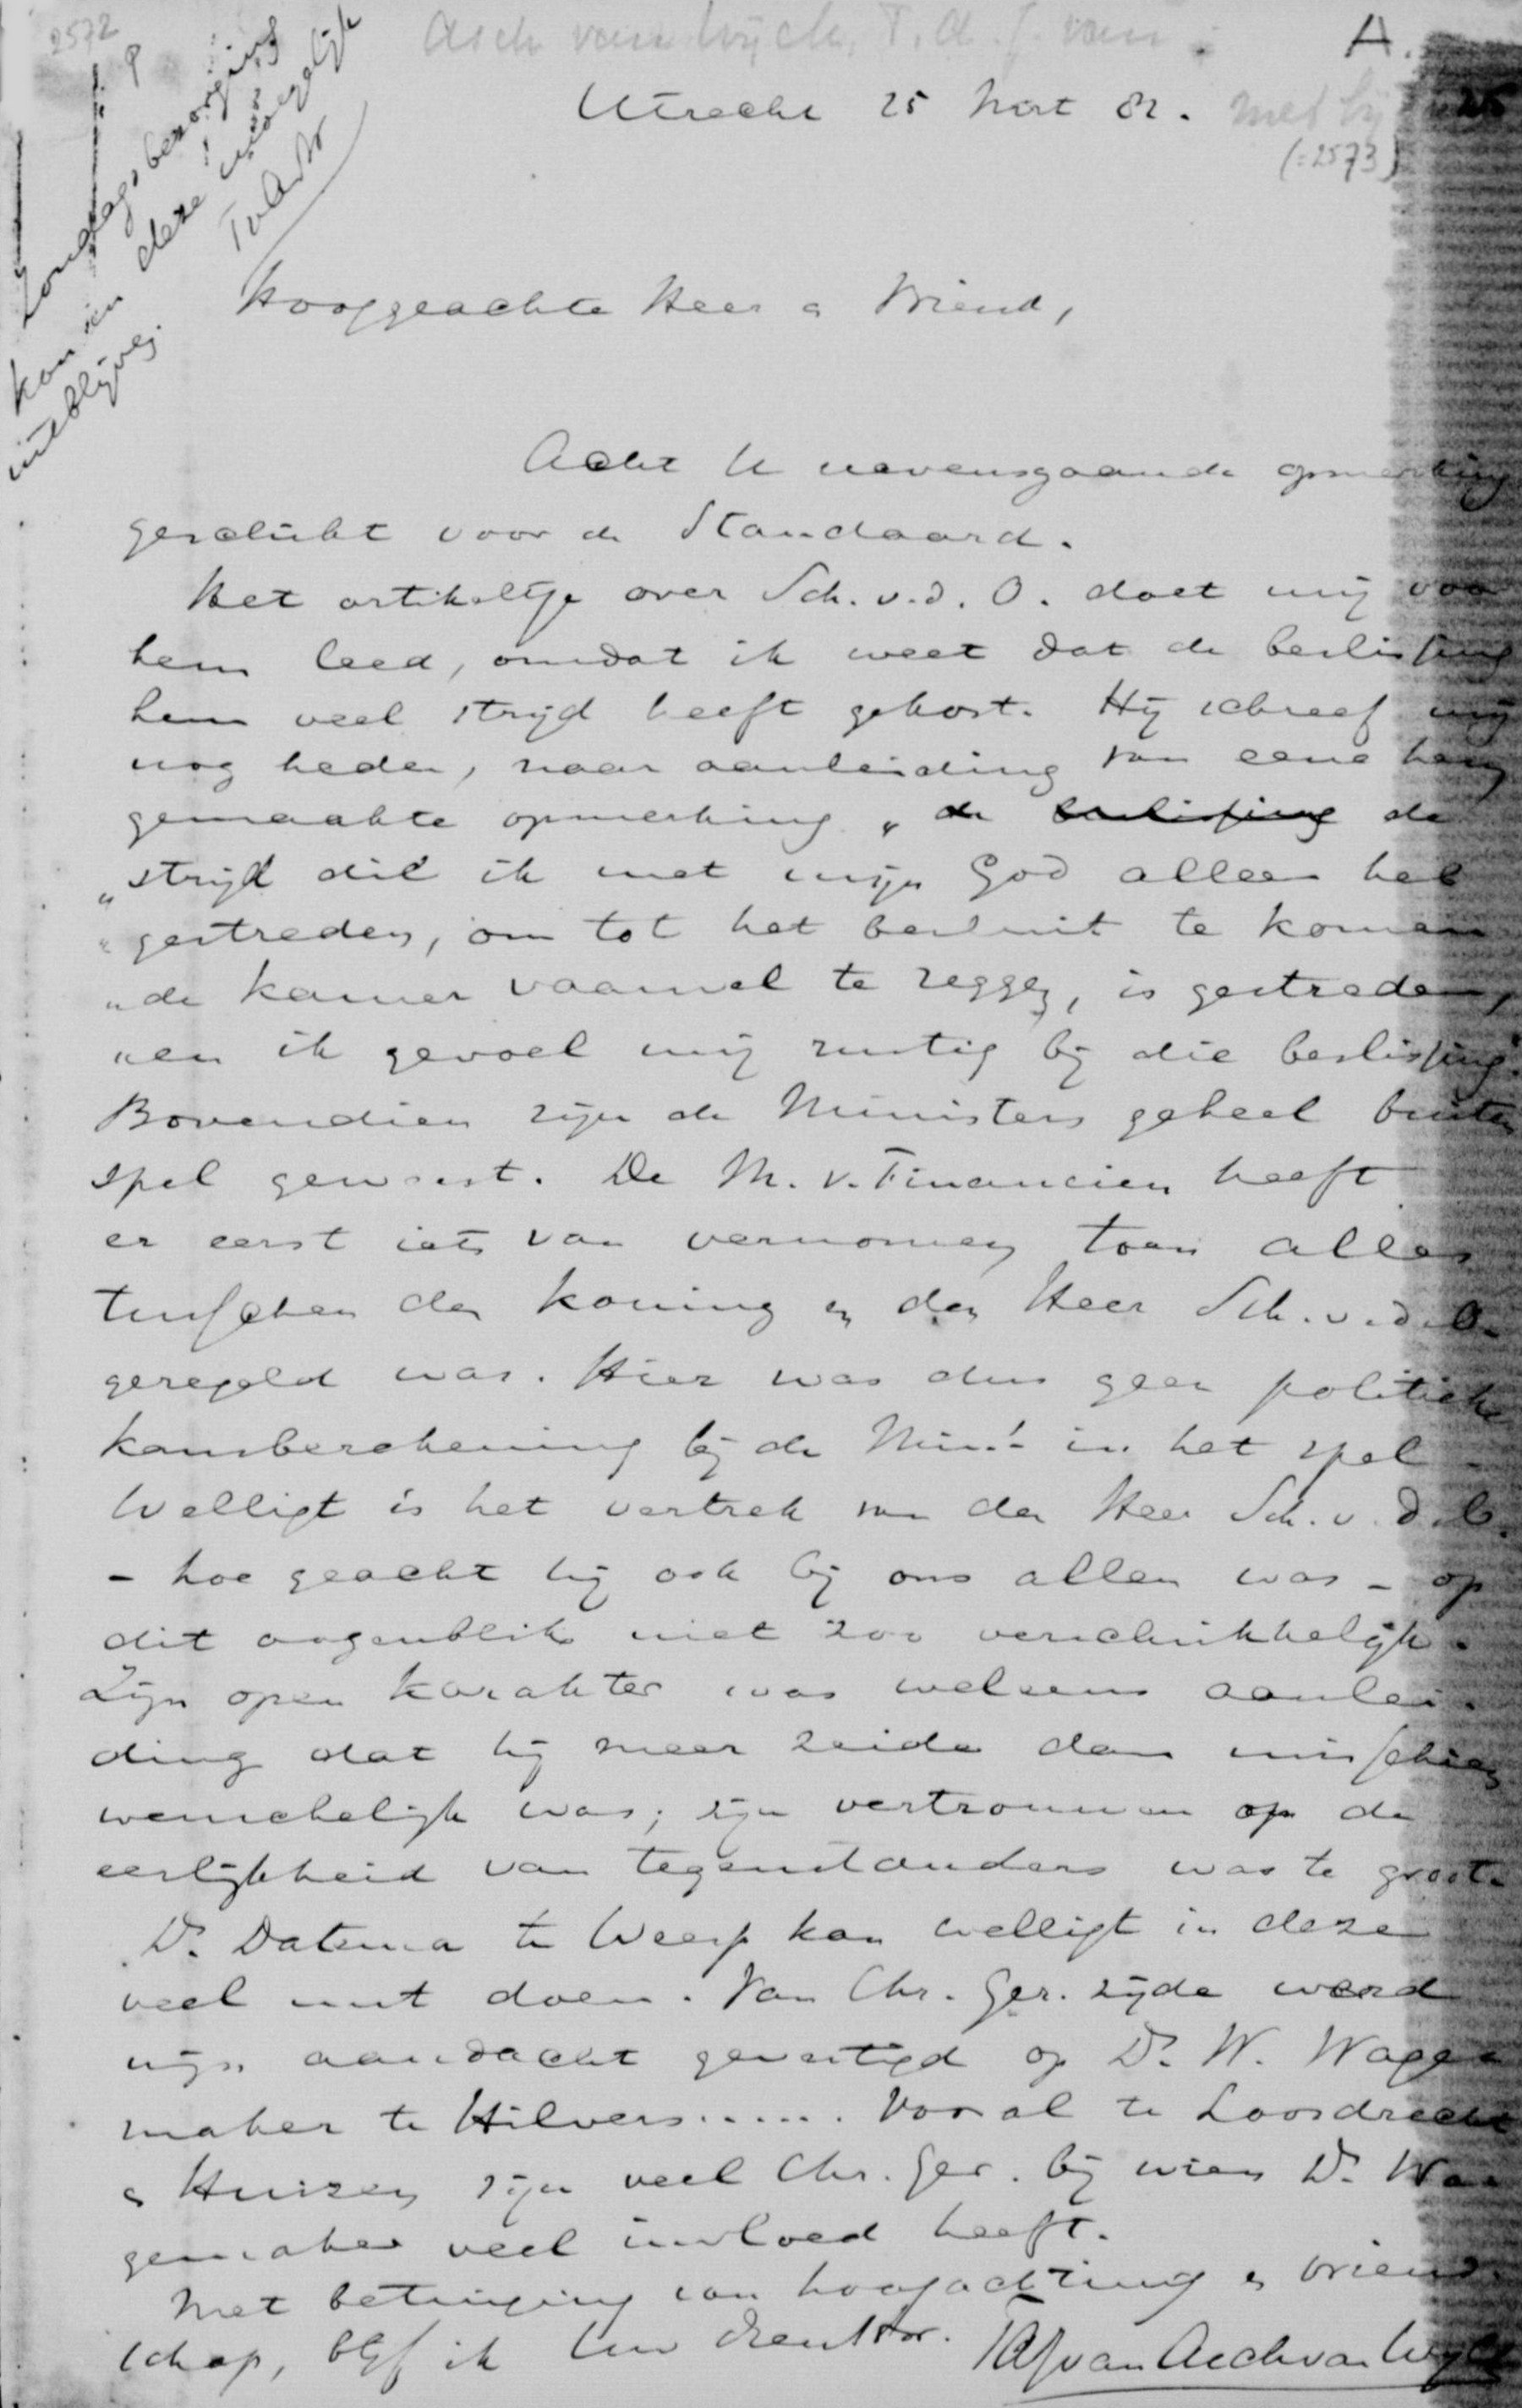 2572
Asch van Wijck, T. A. J. van
A.
Utrecht 25 Mrt 82.
met bij
(=2573)
Zondagsbezorging
kan in deze mogelijk
uitblijven.
TvAvW
Hooggeachte Heer & Vriend,
Acht U nevensgaande opmerking
geschikt voor de Standaard.
Het artikeltje over Sch. v. d. O. doet mij voor
hem leed, omdat ik weet dat de beslissing
hem veel strijd heeft gekost. Hij schreef mij
nog heden, naar aanleiding van eene
gemaakte opmerking „de beslissing de
„strijd die ik met mijn God alleen heb
„gestreden, om tot het besluit te komen
„de kamer vaarwel te zeggen, is gestreden,
„en ik gevoel mij rustig bij die beslissing."
Bovendien zijn de Ministers geheel buiten
spel geweest. De M. v. Financien heeft
er eerst iets van vernomen toen alles
tusschen den koning en den Heer Sch. v. d. O.
geregeld was. Hier was dus geen politieke
kansberekening bij de Min. in het spel.
Welligt is het vertrek van den Heer Sch. v. d. O.
- hoe geacht hij ook bij ons allen was - op
dit oogenblik niet zoo verschrikkelijk.
Zijn open karakter was weleens aanlei-
ding dat hij meer zeide dan misschien
wenschelijk was; zijn vertrouwen op de
eerlijkheid van tegenstanders was te groot.
Ds. Datema te Weesp kan welligt in deze
veel nut doen. Van Chr. Ger. zijde werd
mijn aandacht gevestigd op Ds. W. Wage
maker te Hilvers..... Vooral te Loosdrecht
& Huizen zijn veel Chr. Ger. bij wien Ds. Wa
gemaker veel invloed heeft.
Met betuiging van hoogachting & vriend
schap, blijf ik Uw
TAJ van Asch van Wijck